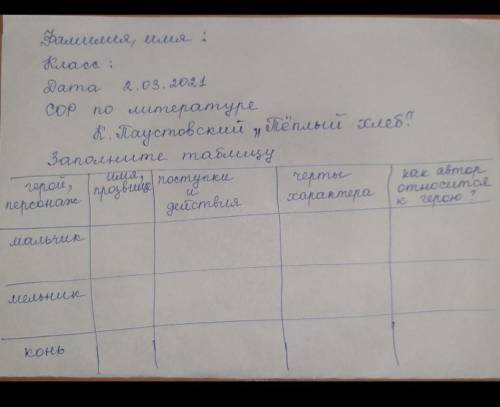 Фамилия, имя :
Класс :
Дата 2.03.2021
СОР по литературе
К. Паустовский „Тёплый хлеб."
Заполните таблицу
герой, персонаж | имя, прозвище | поступки и действия | черты характера | как автор относится к герою?
мальчик
мельник
конь